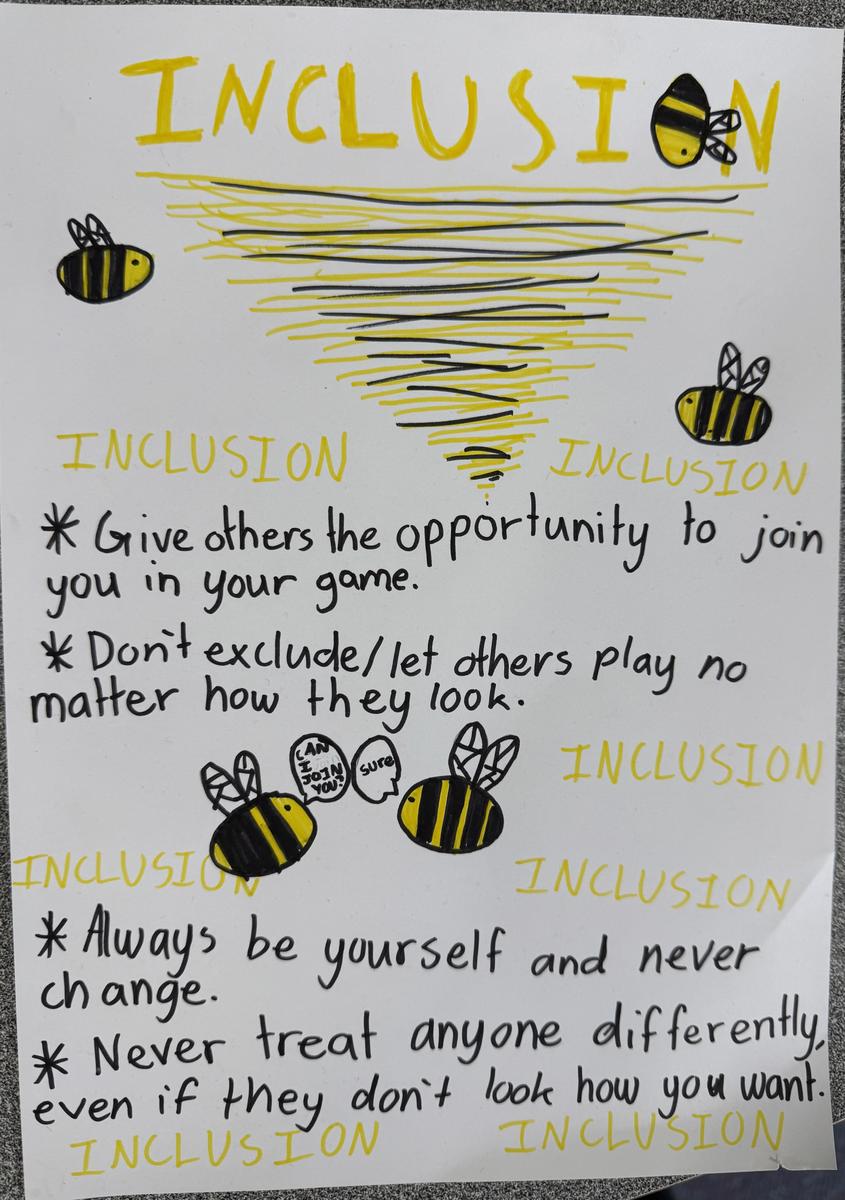 INCLUSION
INCLUSION
INCLUSION
* Give others the opportunity to join
you in your game.
* Don't exclude/let others play no
matter how they look.
CAN
I
JOIN
YOU?
sure
INCLUSION
INCLUSION
INCLUSION
* Always be yourself and never
change.
* Never treat anyone differently,
even if they don't look how you want.
INCLUSION
INCLUSION